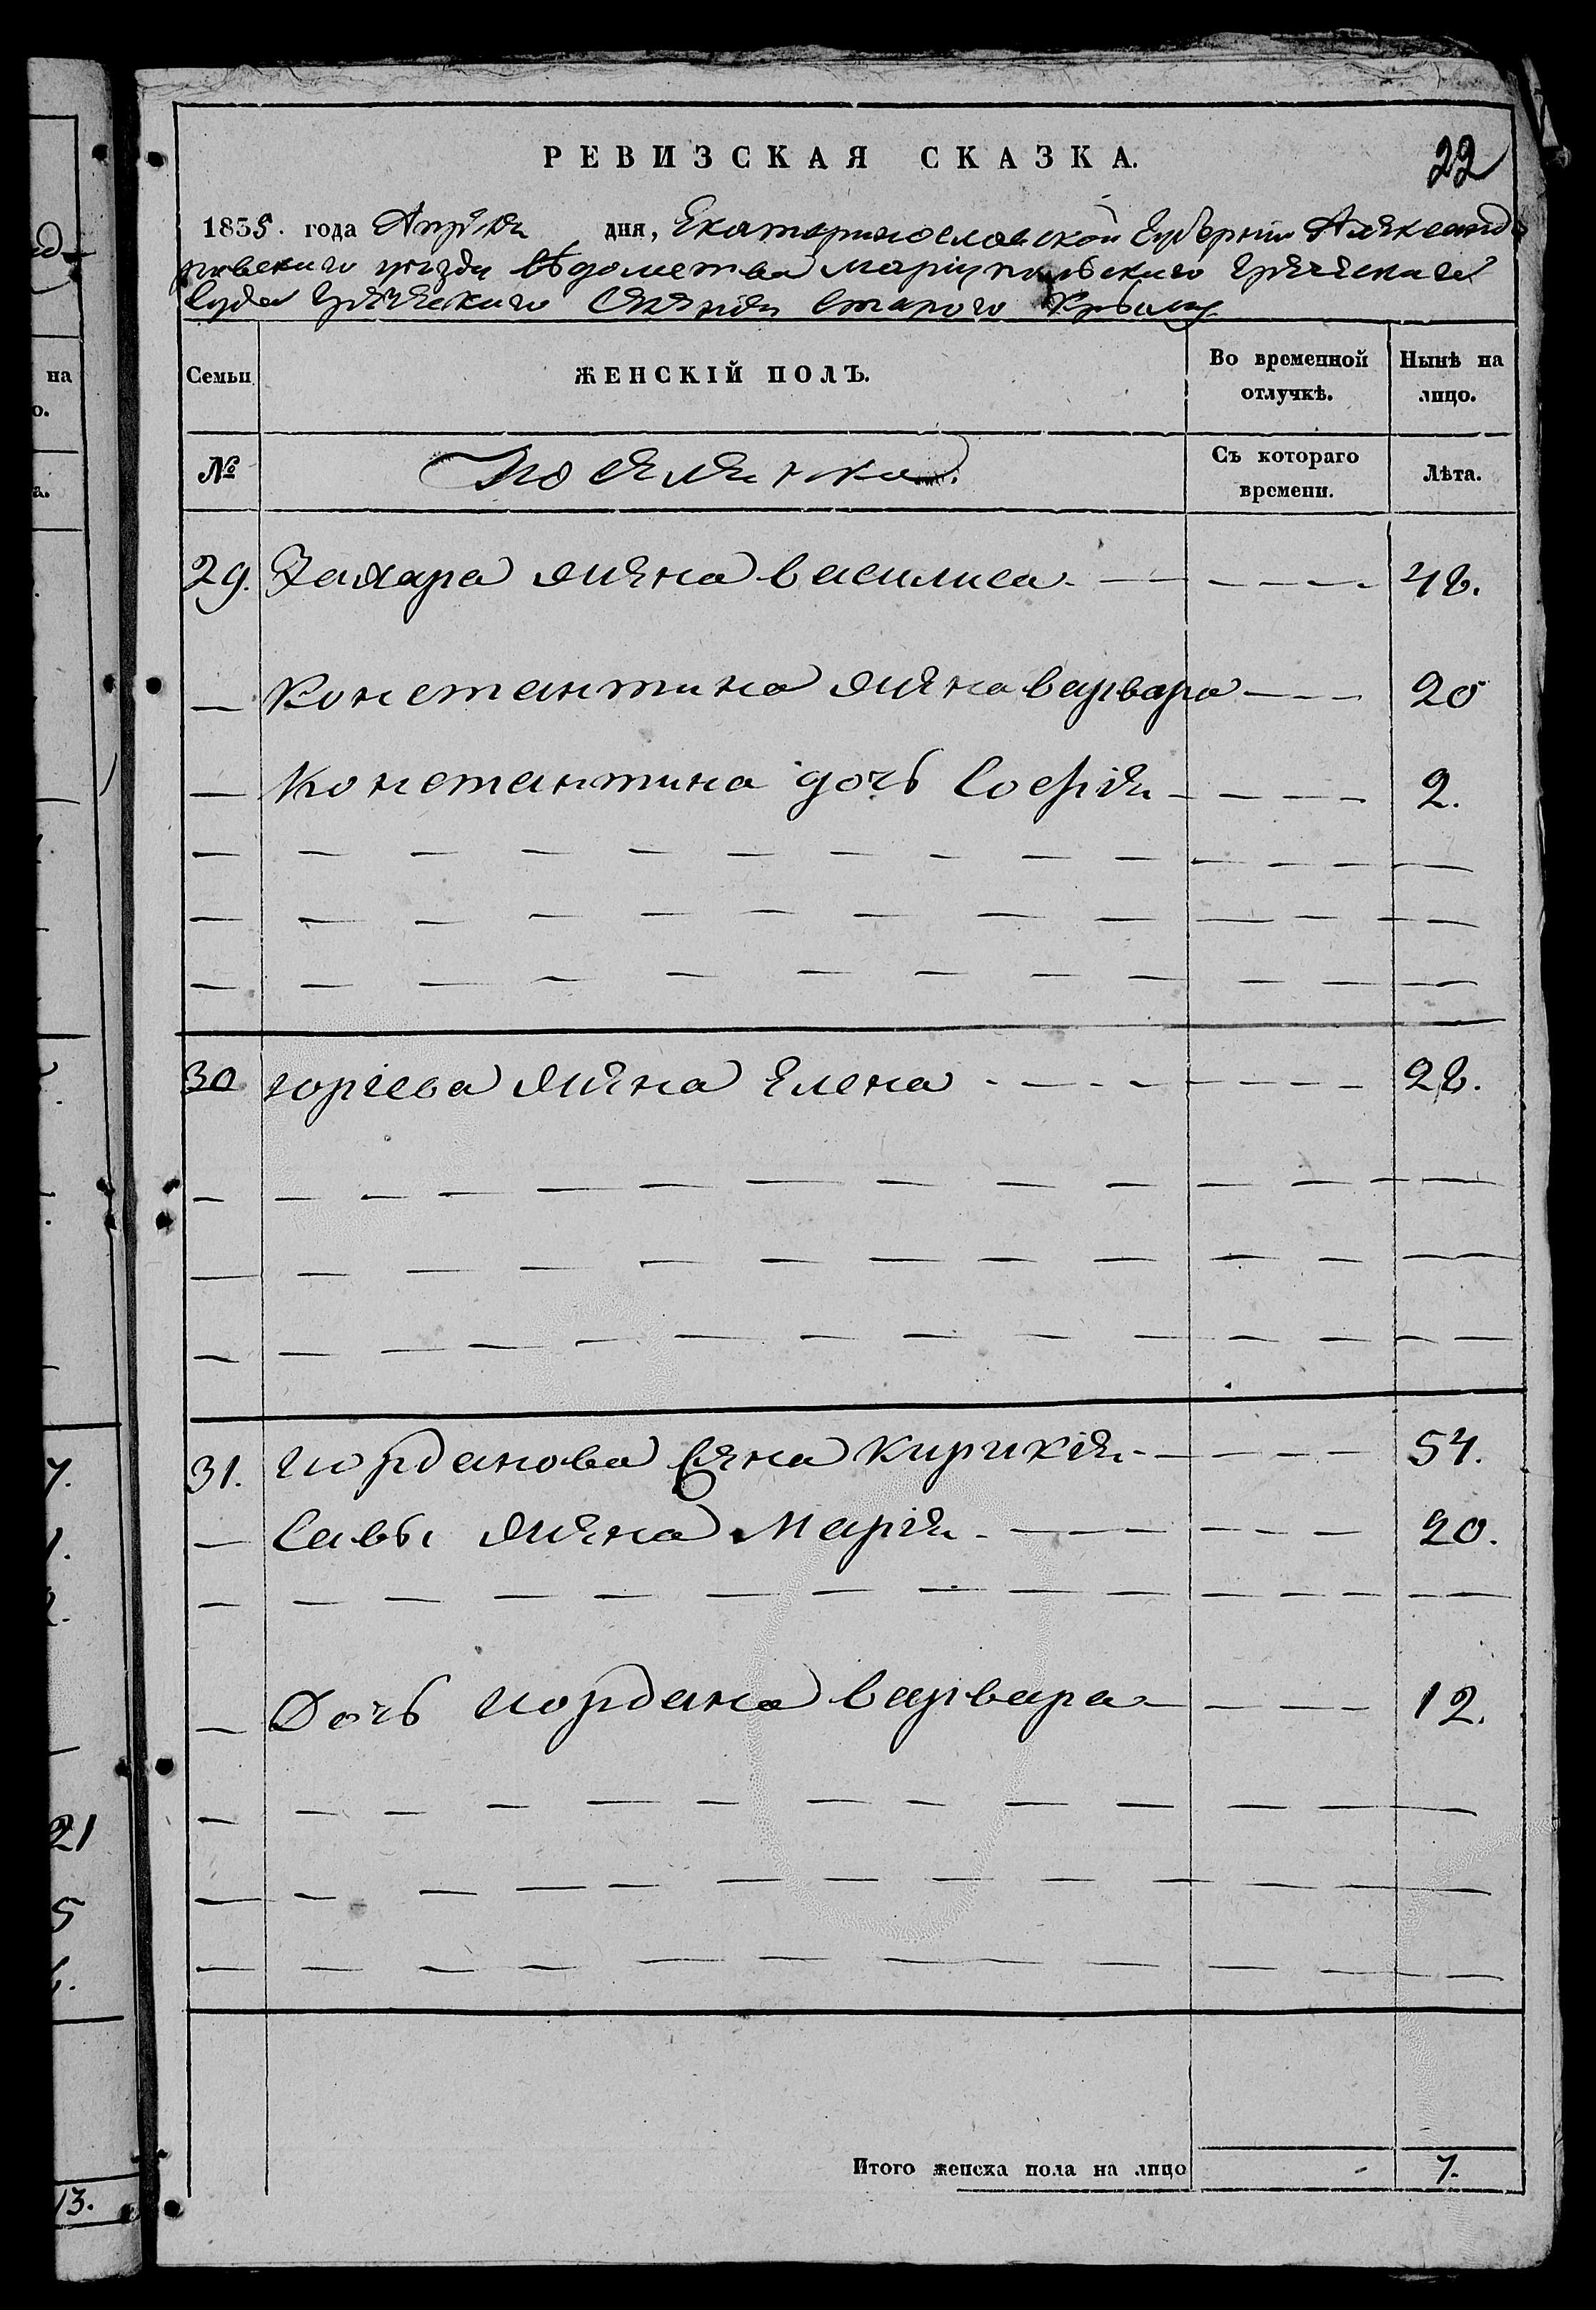 РЕВИЗСКАЯ СКАЗКА.
22
1835. года Апреля дня, Екатеринославской Губернии Александ
ровскаго уезда Вѣдомства Мариупольскаго Греческаго
Суда Греческаго Селения Старого Крыма
Семьи ЖЕНСКІЙ ПОЛЪ. Во временной отлучкѣ. Нынѣ на лицо.
№ Поселянка. Съ котораго времени. Лѣта.
29. Захара жена Василиса 48.
Константина жена Варвара 20
Константина дочь Софія 2.
30 юріева жена Елена 28.
31. Иорданова жена Кирикія 54.
Савы жена Марія 20.
Дочь Иордана Варвара 12.
Итого женска пола на лицо - 7.
на
о.
а.
7.
1.
21
5
13.